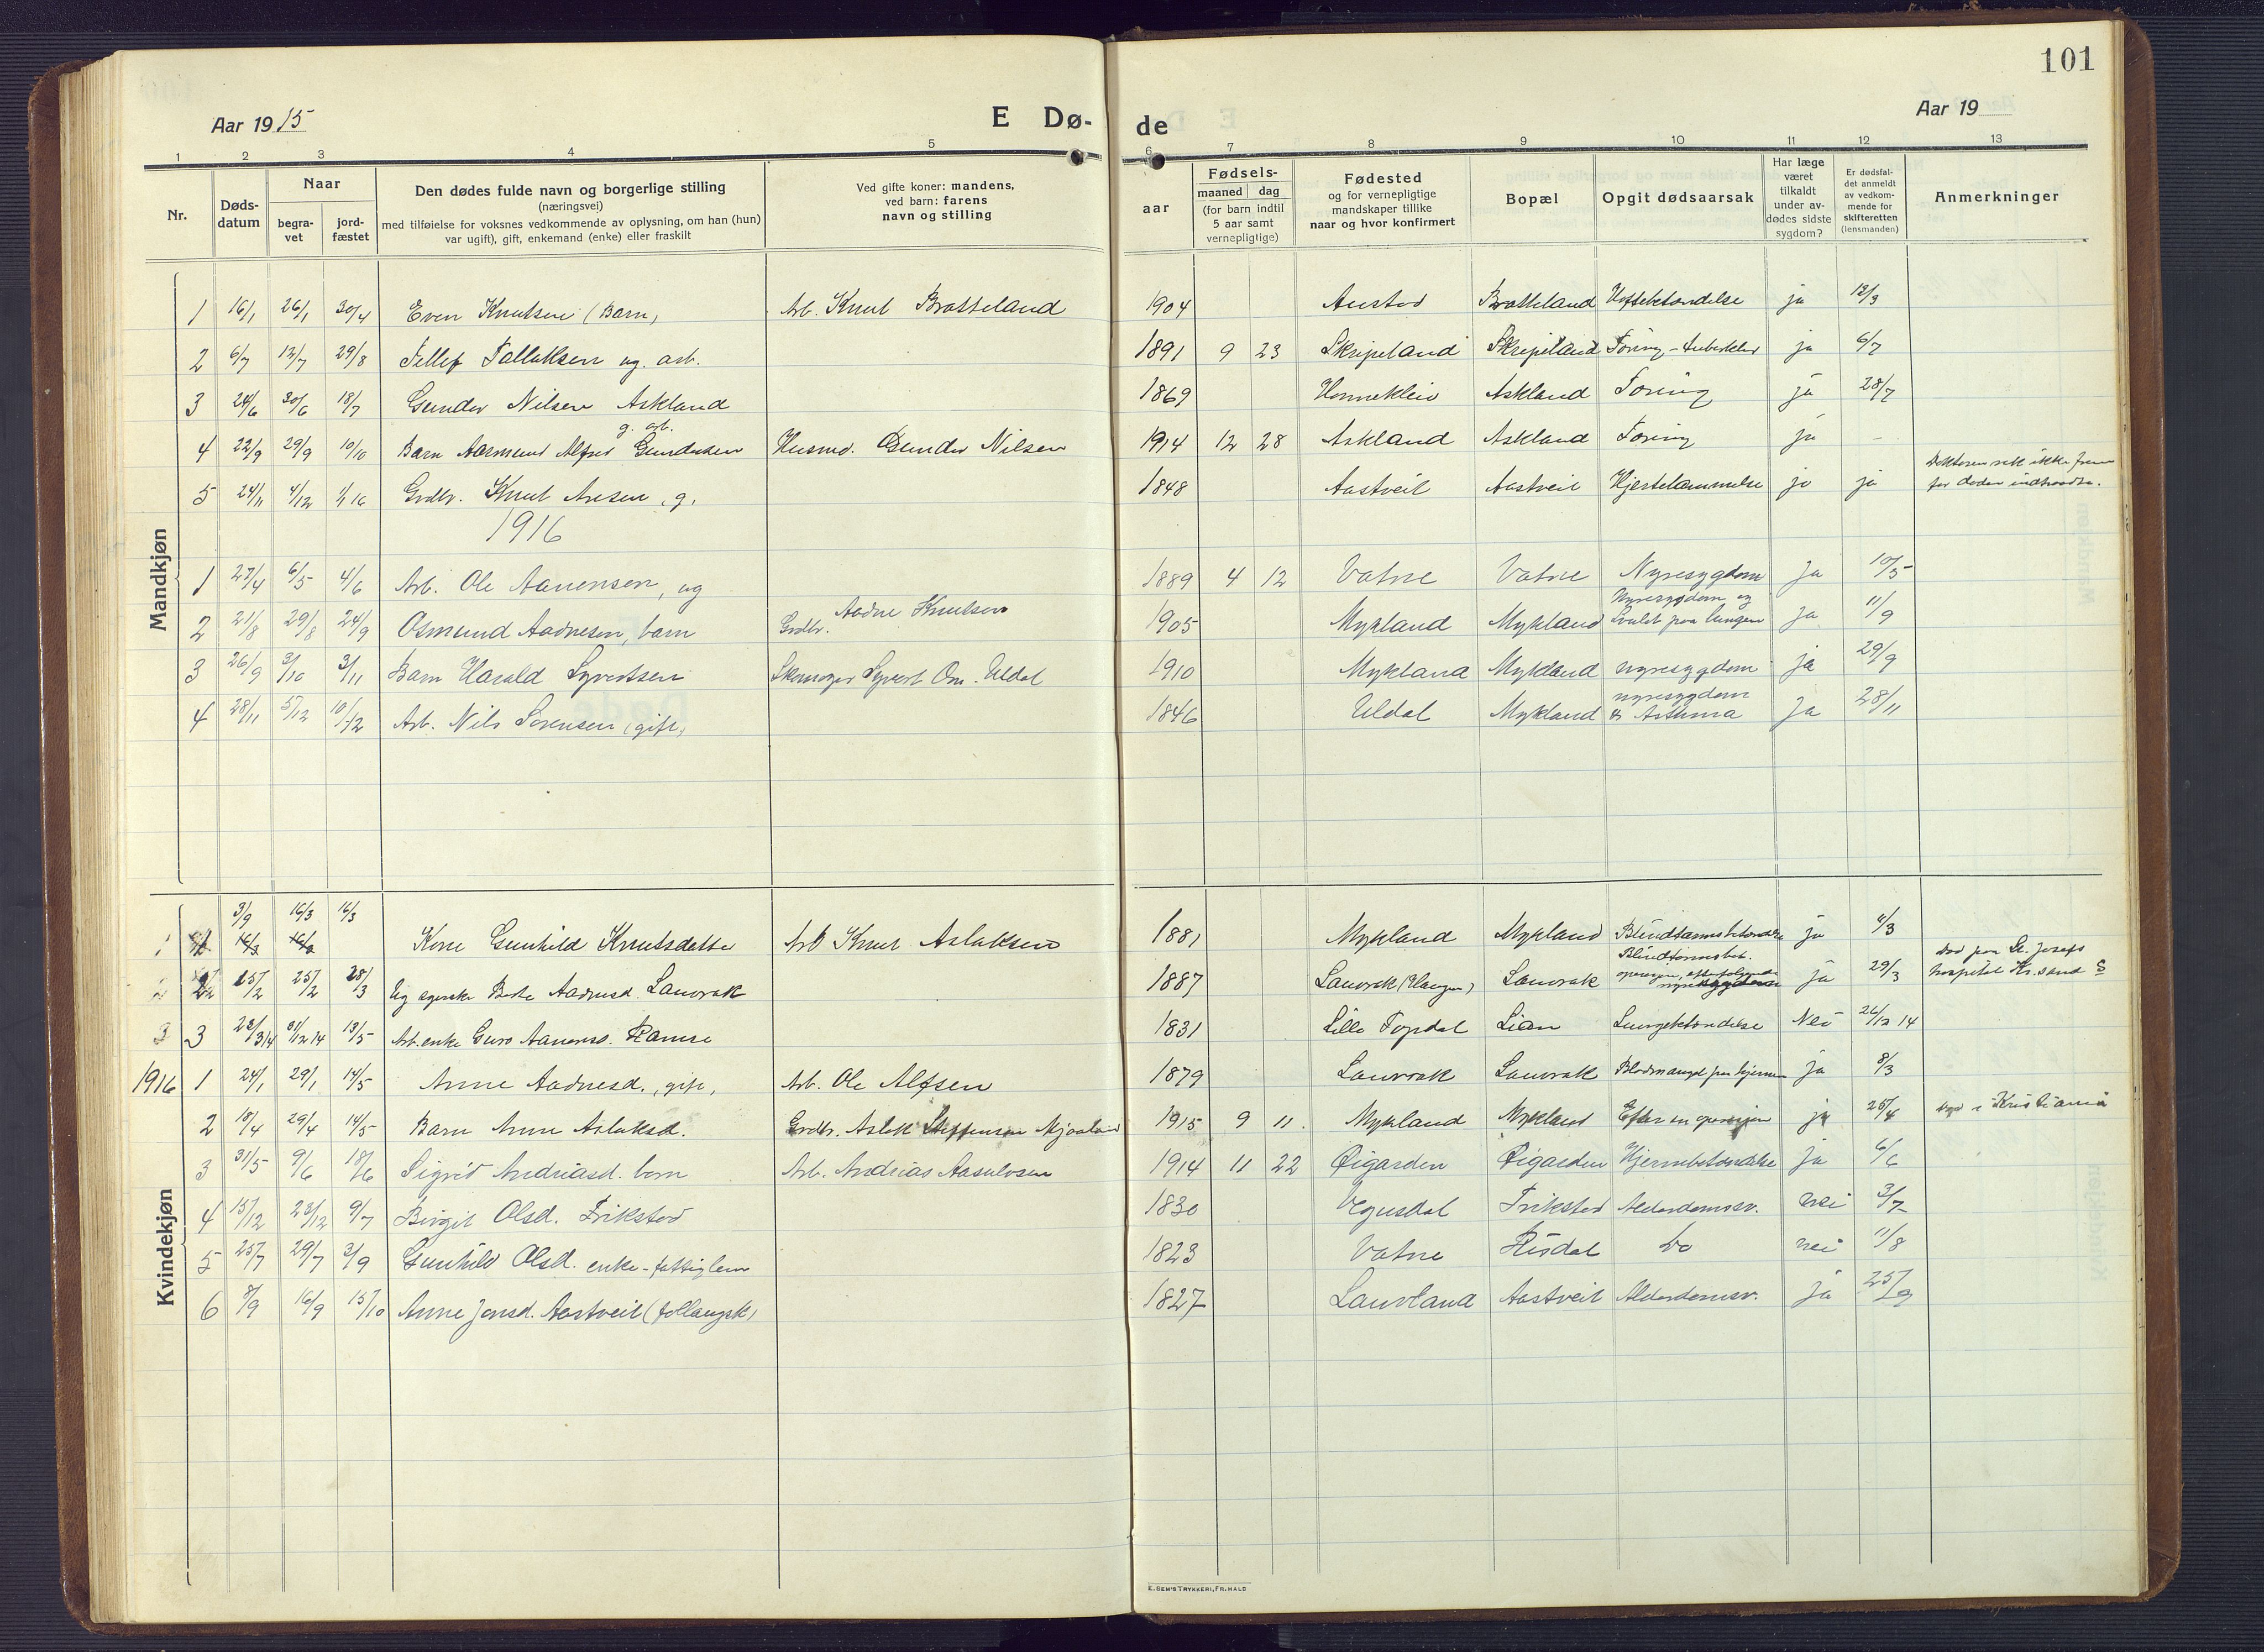 101
Aar 1915
E Dø-
de
Aar 19
1 2 3 4 5 6 7 8 9 10 11 12 13
Nr.
Døds-
datum
Naar
begra-
vet
jord-
fæstet
Den dødes fulde navn og borgerlige stilling
(næringsvei)
med tilføielse for voksnes vedkommende av oplysning, om han (hun)
var ugift), gift, enkemand (enke) eller fraskilt
Ved gifte koner: mandens,
ved barn: farens
navn og stilling
aar
Fødsels-
maaned dag
(for barn indtil
5 aar samt
vernepligtige)
Fødested
og for vernepligtige
mandskaper tillike
naar og hvor konfirmert
Bopæl
Opgit dødsaarsak
Har læge
været
tilkaldt
under av-
dødes sidste
sygdom?
Er dødsfal-
det anmeldt
av vedkom-
mende for
skifteretten
(lensmanden)
Anmerkninger
Mandkjøn
1 16/1 26/1 30/4 Even Knutsen (Barn) Arb. Knut Bratteland 1904 Austad Bratteland Hoftebetændelse ja 12/3
2 6/7 12/7 29/8 Tellef Tallaksen ug. arb. 1891 9 23 Skripeland Skripeland Tæring - tuberklер ja 6/7
3 24/6 30/6 18/7 Gunder Nilsen Askland 1869 Honnekleiv Askland Tæring ja 28/7
g. arb.
4 22/9 29/9 10/10 Barn Aasmund Alfred Gundersen Husmd. Gunder Nilsen 1914 12 28 Askland Askland Tæring ja –
5 24/11 4/12 1/1 16 Grdbr. Knut Aresen, g. 1848 Aastveit Aastveit Hjertelammelse ja ja Doktoren rak ikke frem
før døden indtraadte.
1916
1 27/4 6/5 4/6 Arb. Ole Aanensen, ug 1889 4 12 Vatne Vatne Nyresygdom ja 10/5
2 21/8 29/8 24/9 Osmund Aadnesen, barn Grdbr. Aadne Knutsen 1905 Mykland Mykland Nyresygdom og
Svulst paa lungen ja 11/9
3 26/9 3/10 3/11 Barn Harald Syvertsen Skomager Syvert Om. Uldal 1910 Mykland Mykland nyresygdom ja 29/9
4 28/11 5/12 10/12 Arb. Nils Sørensen (gift) 1846 Uldal Mykland nyresygdom
& Asthma Ja 28/11
Kvindekjøn
3/9 16/3 16/3
1 Kone Gunhild Knutsdatter Arb Knut Aslaksen 1881 Mykland Mykland Blindtarmsbetændelse ja 4/3
2 25/2 25/2 28/3 Ug. Aadnesd. Lauvrak 1887 Lauvrak Lauvrak Blindtarmsbet.
operasjon, efterfølgende
nyresygdom ja 29/3 Død paa St. Josefs
hospital Kr.sand S
3 23/3 14 31/12 14 13/5 Arb.enke Guro Aanensd. Ramse 1831 Lille Topdal Lian Lungebetændelse Nei 26/12 14
1916 1 24/1 29/1 14/5 Anne Aadnesd., gift, Arb. Ole Alfsen 1879 Lauvrak Lauvrak Blodmangel paa hjernen ja 8/3
2 18/4 29/4 14/5 Barn Anne Aslaksd. Grdbr. Aslak Steffensen Mjaaland 1915 9 11. Mykland Mykland Efter en operasjon ja 25/4 Død i Kristiania
3 31/5 9/6 18/6 Sigrid Andreasd. barn Arb. Andreas Aasulvsen 1914 11 22 Øigarden Øigarden Hjernebetændelse ja 6/6
4 15/12 23/12 9/7 Birgit Olsd. Trikstad 1830 Vegusdal Trikstad Alderdomssv. nei 3/7
5 23/7 29/7 3/9 Gunhild Olsd. enke - fattiglem 1823 Vatne Risdal Do nei 11/8
6 8/9 16/9 15/10 Anne Jensd. Aastveit (follaugsk) 1827 Lauvland Aastveit Alderdomsv. ja 25/9
E. SEM'S TRYKKERI, FR.HALD